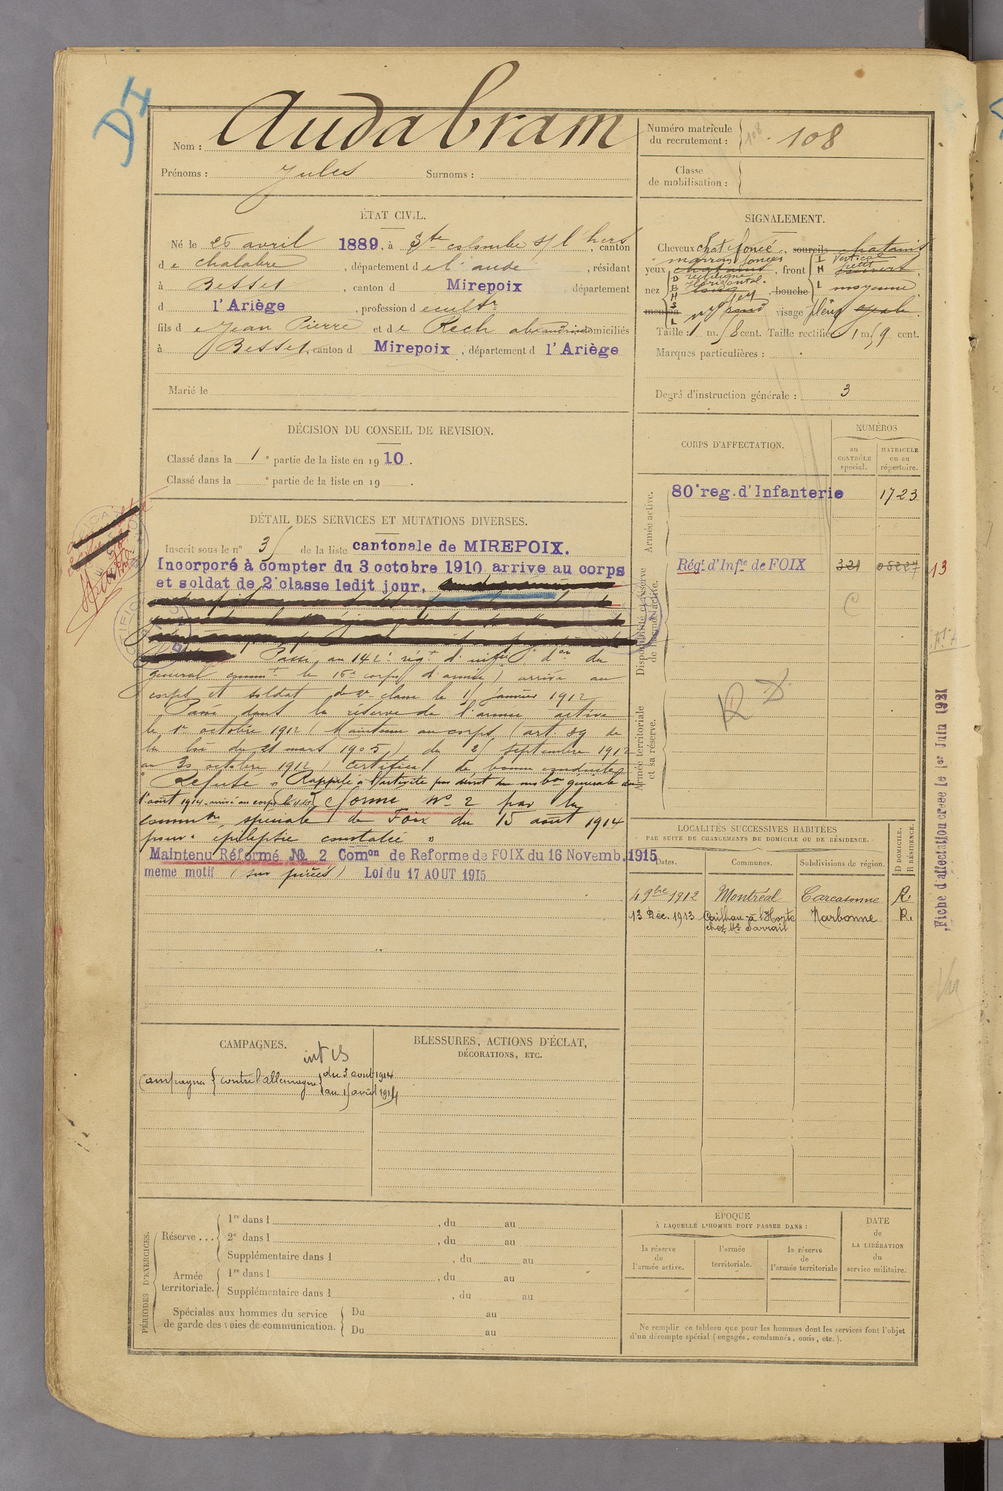 DI
Nom : Audabram
Prénoms : Jules Surnoms :
Numéro matricule du recrutement : 108
Classe de mobilisation :
ÉTAT CIVIL.
Né le 25 avril 1889, à Ste colombe s/ l'hers, canton
de chalabre, département de l'aude, résidant
à Besset, canton d Mirepoix, département
d l'Ariège, profession d cultr
fils de Jean Pierre et de Rech domiciliés
à Besset, canton d Mirepoix, département d l'Ariège
Marié le
SIGNALEMENT.
Cheveux chat foncé, sourcils chatains
marron foncés
yeux chatains, front Vertical
nez rectiligne Horizontal. bouche moyenne
menton visage plein ovale
Taille : 1 m. 58 cent. Taille rectifiée 1 m. 59 cent.
Marques particulières :
Degré d'instruction générale : 3
DÉCISION DU CONSEIL DE REVISION.
Classé dans la 1e partie de la liste en 1910.
Classé dans la e partie de la liste en 19 .
CORPS D'AFFECTATION.
NUMÉROS
au CONTRÔLE spécial.
MATRICULE ou au répertoire.
Armée active.
80e reg. d'Infanterie 1723
Disponibilité et réserve de l'armée active.
Régt d'Infie de FOIX 321 05227
13
C
Armée territoriale et sa réserve.
DÉTAIL DES SERVICES ET MUTATIONS DIVERSES.
Inscrit sous le n° 35 de la liste cantonale de MIREPOIX.
Incorporé à compter du 3 octobre 1910 arrive au corps
et soldat de 2e classe ledit jour,
Passé au 142e régt d'infie don du
général commt le 16e corps d'armée) arrivé au
corps et soldat de 2e classe le 1 janvier 1912
Passé dans la réserve de l'armée active
le 1er octobre 1912 (Maintenu au corps (art 39 de
la loi du 21 mars 1905) du 2 septembre 1912
au 30 octobre 1912) Certificat de bonne conduite
"Refusé" Rappelé à l'activité par décret de mobon générale du
1er août 1914. arrivé au corps le
Réformé No 2 par la
comm on spéciale de Foix du 15 août 1914
pour "épilepsie constatée"
Maintenu Réformé No 2 Comon de Reforme de FOIX du 16 Novemb. 1915
meme motif (sur pièces) Loi du 17 AOUT 1915
LOCALITÉS SUCCESSIVES HABITÉES
PAR SUITE DE CHANGEMENTS DE DOMICILE OU DE RÉSIDENCE.
Dates. Communes. Subdivisions de région. D DOMICILE. R RÉSIDENCE.
4 9bre 1912 Montréal Carcasonne R.
13 Déc. 1913 Cailhau à l'Horte Narbonne R.
chez Mr
Fiche d'affectation créée le 1er Juin 1921
CAMPAGNES.
int CS
Campagne contre l'allemagne du 3 août 1914
au 15 août 1914
BLESSURES, ACTIONS D'ÉCLAT,
DÉCORATIONS, ETC.
PÉRIODES D'EXERCICES.
Réserve ... 1re dans l , du au
2e dans l , du au
Supplémentaire dans l , du au
Armée territoriale. 1re dans l , du au
Supplémentaire dans l , du au
Spéciales aux hommes du service Du au
de garde des voies de communication. Du au
ÉPOQUE
À LAQUELLE L'HOMME DOIT PASSER DANS :
la réserve de l'armée active.
l'armée territoriale.
la réserve de l'armée territoriale
DATE de LA LIBÉRATION du service militaire.
Ne remplir ce tableau que pour les hommes dont les services font l'objet
d'un décompte spécial (engagés, condamnés, omis, etc.).